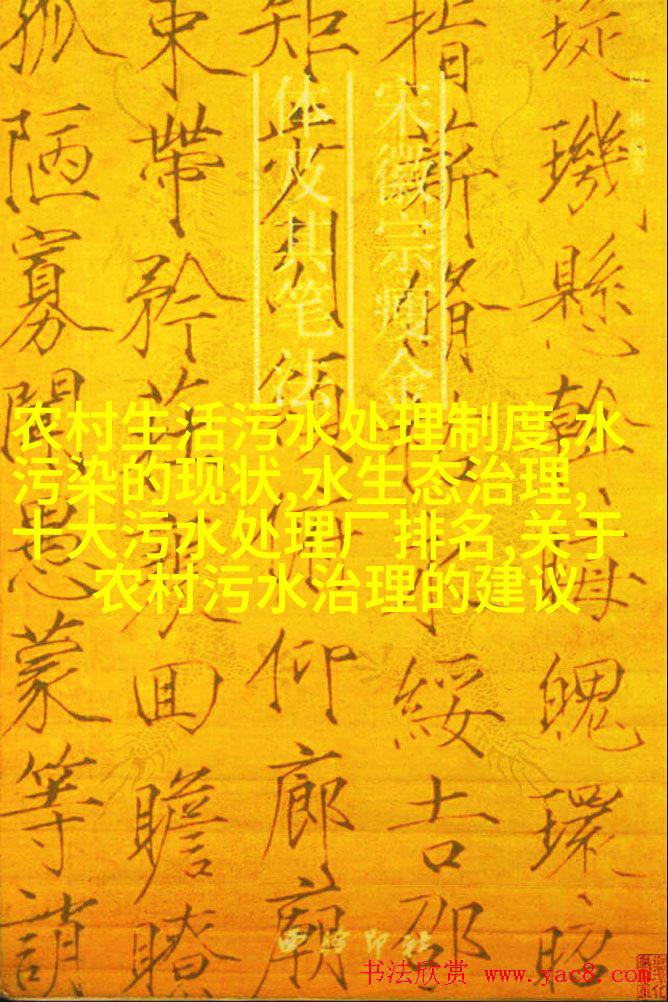 璇璣懸斡晦魄環照
指薪脩祜永綏吉劭
矩步引領俯仰廊廟
束帶矜莊徘回瞻眺
孤陋寡聞愚蒙等誚
宋徽宗瘦金
体及其笔法
农村生活污水处理制度,水
污染的现状,水生态治理,
十大污水处理厂排名,关于
农村污水治理的建议
西泠印社
书法欣赏 www.yac8.com